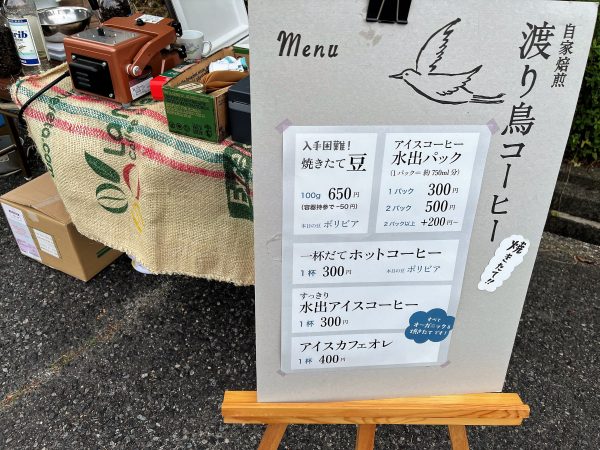 Menu
自家焙煎
渡り鳥コーヒー
焼きたて!!
入手困難!
焼きたて 豆
100g 650円
(容器持参で-50円)
本日の豆 ボリビア
アイスコーヒー
水出パック
(1パック=約750ml分)
1パック 300円
2パック 500円
2パック以上 +200円~
一杯だて ホットコーヒー
1杯 300円 本日の豆 ボリビア
すっきり
水出アイスコーヒー
1杯 300円
すべて
オーガニック&
焼きたてです!
アイスカフェオレ
1杯 400円